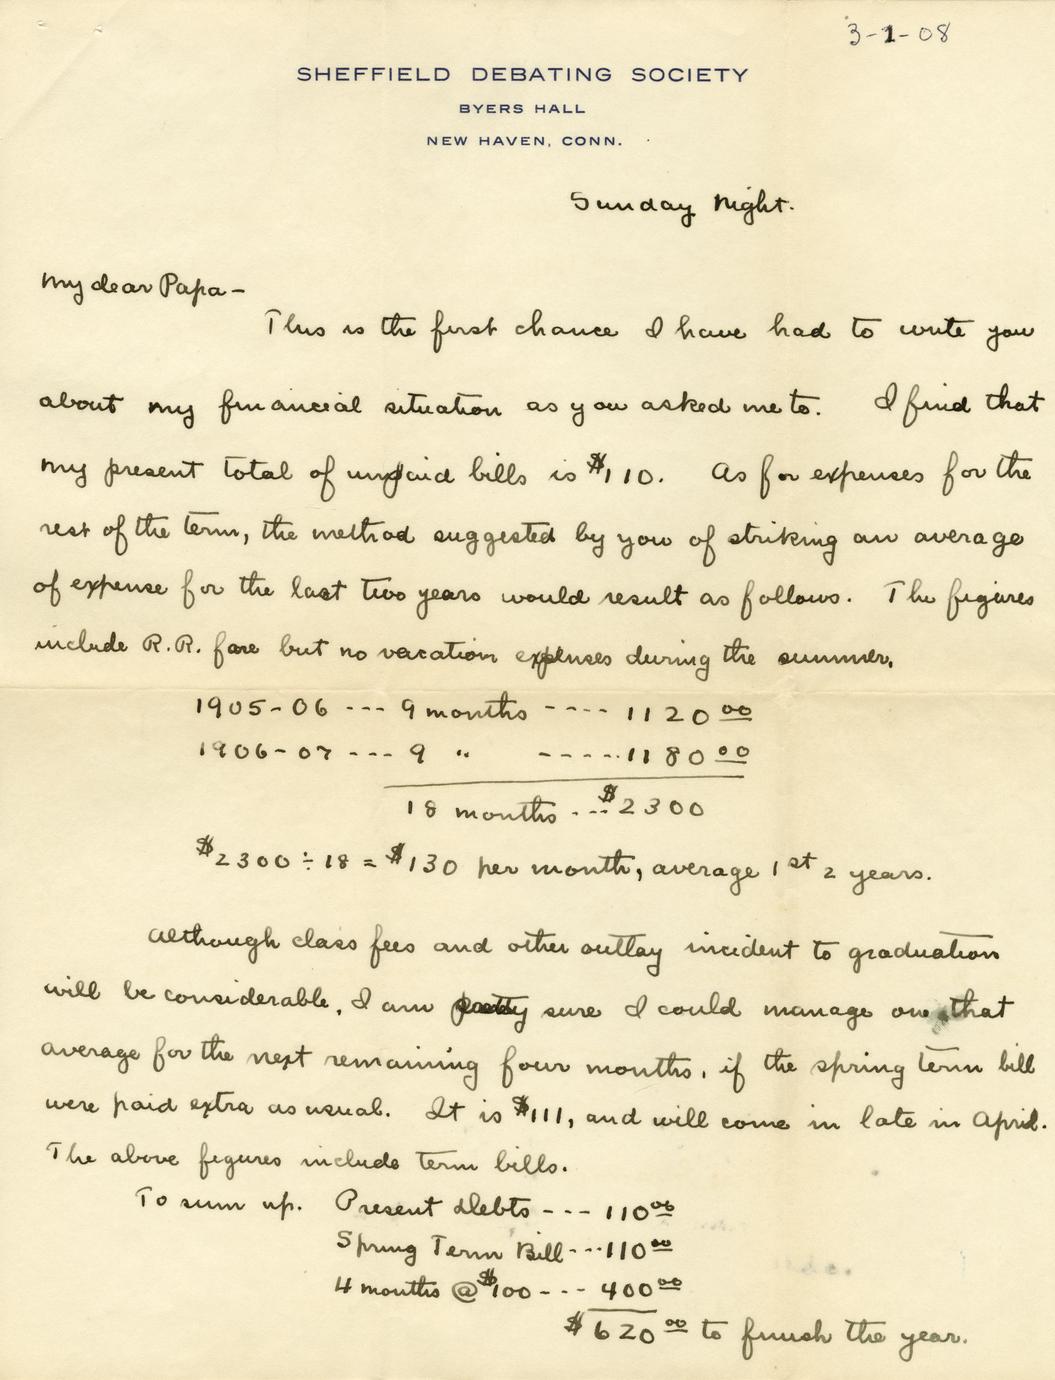 3-1-08
SHEFFIELD DEBATING SOCIETY
BYERS HALL
NEW HAVEN, CONN.
Sunday Night.
My dear Papa-
This is the first chance I have had to write you
about my financial situation as you asked me to. I find that
my present total of unpaid bills is $110. As for expenses for the
rest of the term, the method suggested by you of striking an average
of expense for the last two years would result as follows. The figures
include R.R. fare but no vacation expenses during the summer.
1905-06 --- 9 months ---- 1120 00
1906-07 ---- 9 " -----1180 00
18 months ---$2300
$2300 ÷ 18 = $130 per month, average 1st 2 years.
Although class fees and other outlay incident to graduation
will be considerable, I am pretty sure I could manage on that
average for the next remaining four months, if the spring term bill
were paid extra as usual. It is $111, and will come in late in April.
The above figures include term bills.
To sum up. Present Debts --- 110 00
Spring Term Bill ---110 00
4 months @ $100 --- 400 00
$620 00 to finish the year.